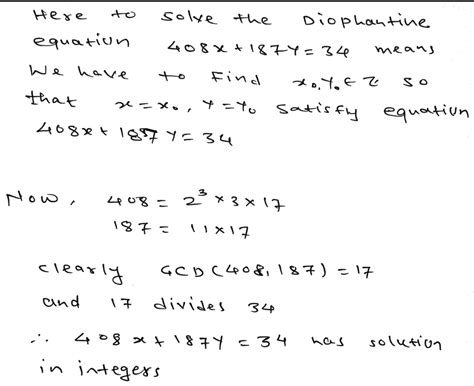 Here to solve the Diophantine
equation 408x + 187y = 34 means
We have to find x₀, y₀ ∈ Z so
that x = x₀, y = y₀ satisfy equation
408x + 187y = 34
Now, 408 = 2³ × 3 × 17
187 = 11 × 17
clearly GCD(408, 187) = 17
and 17 divides 34
∴ 408x + 187y = 34 has solution
in integers